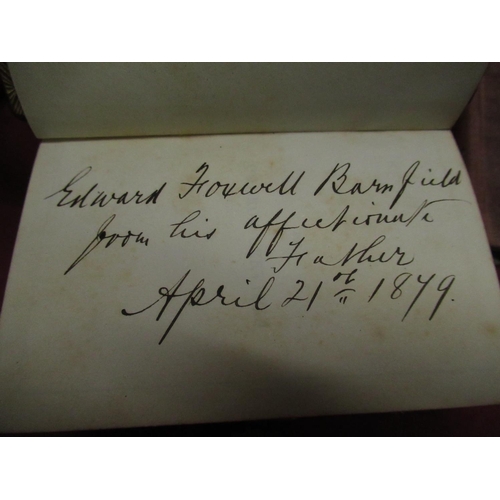 Edward Foxwell Barnfield
from his affectionate
Father
April 21st 1879.